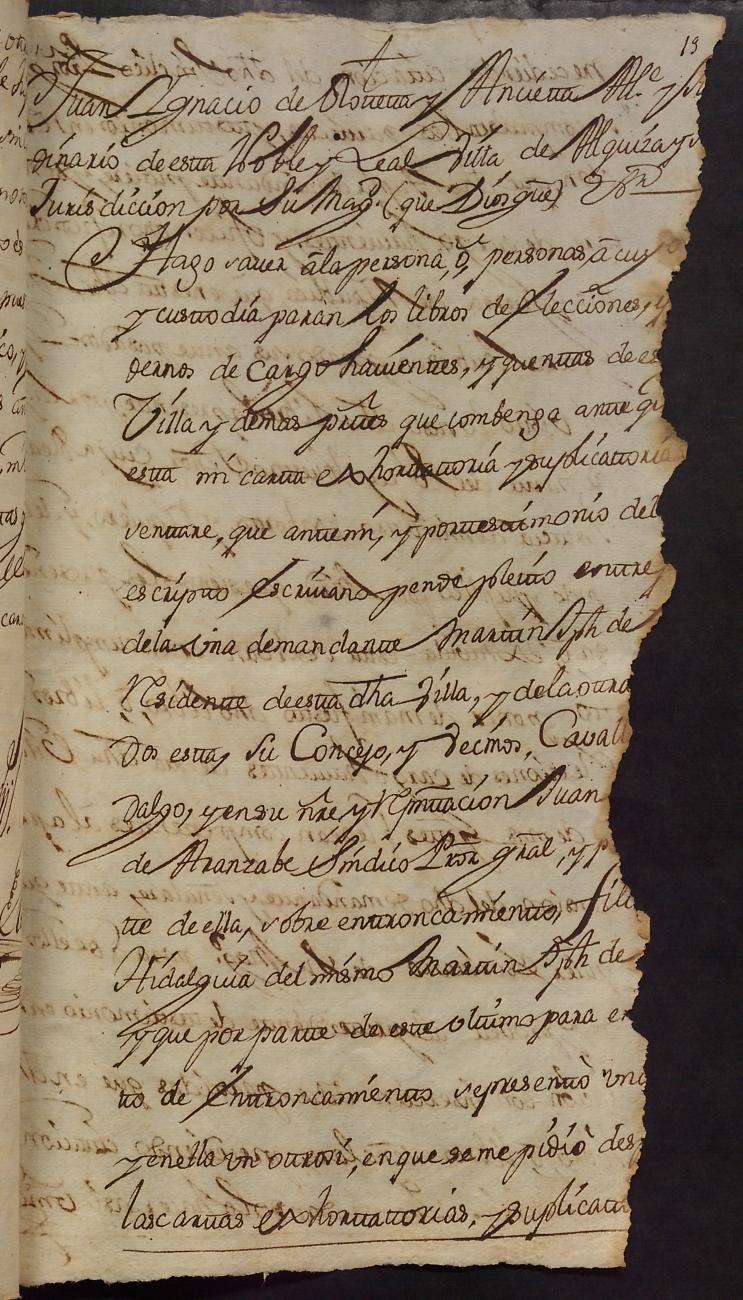 13
Juan Ygnacio de Olotetta y Ancietta Alle. y
dinario de esta Noble y Leal Villa de Alquiza y
Jurisdiccion por Su Magd. (que Dios gue)
Hago saver a la persona, o, personas, a cuio
y custtodia paran los libros de Elecciones, y
dernos de Cargo havientes, y quenttas de es
Villa y demas prttes que combenga antte qu
esta mi cartta exhorttattoria y suplicattoria
venttare, que antte mi, y por testtimonio del
escriptto Escrivano pende pleitto enttre
de la una demandantte Marttin Jph de
Residentte de estta dha Villa, y de la ottra
dos estta, su Concejo, y Vecinos, Cavall
dalgo, y en su nre y Repnttacion Juan
de Aranzabe Sindico Pror gral, y p
tte de ella, sobre enttroncamientto, fili
Hidalguia del mismo Marttin Jph de
y que por partte de estte ulttimo para en
tto de Enttroncamientto se presentto una
y en ella un ottrosi, en que se me pidió des
las carttas exhorttattorias, y suplicatt